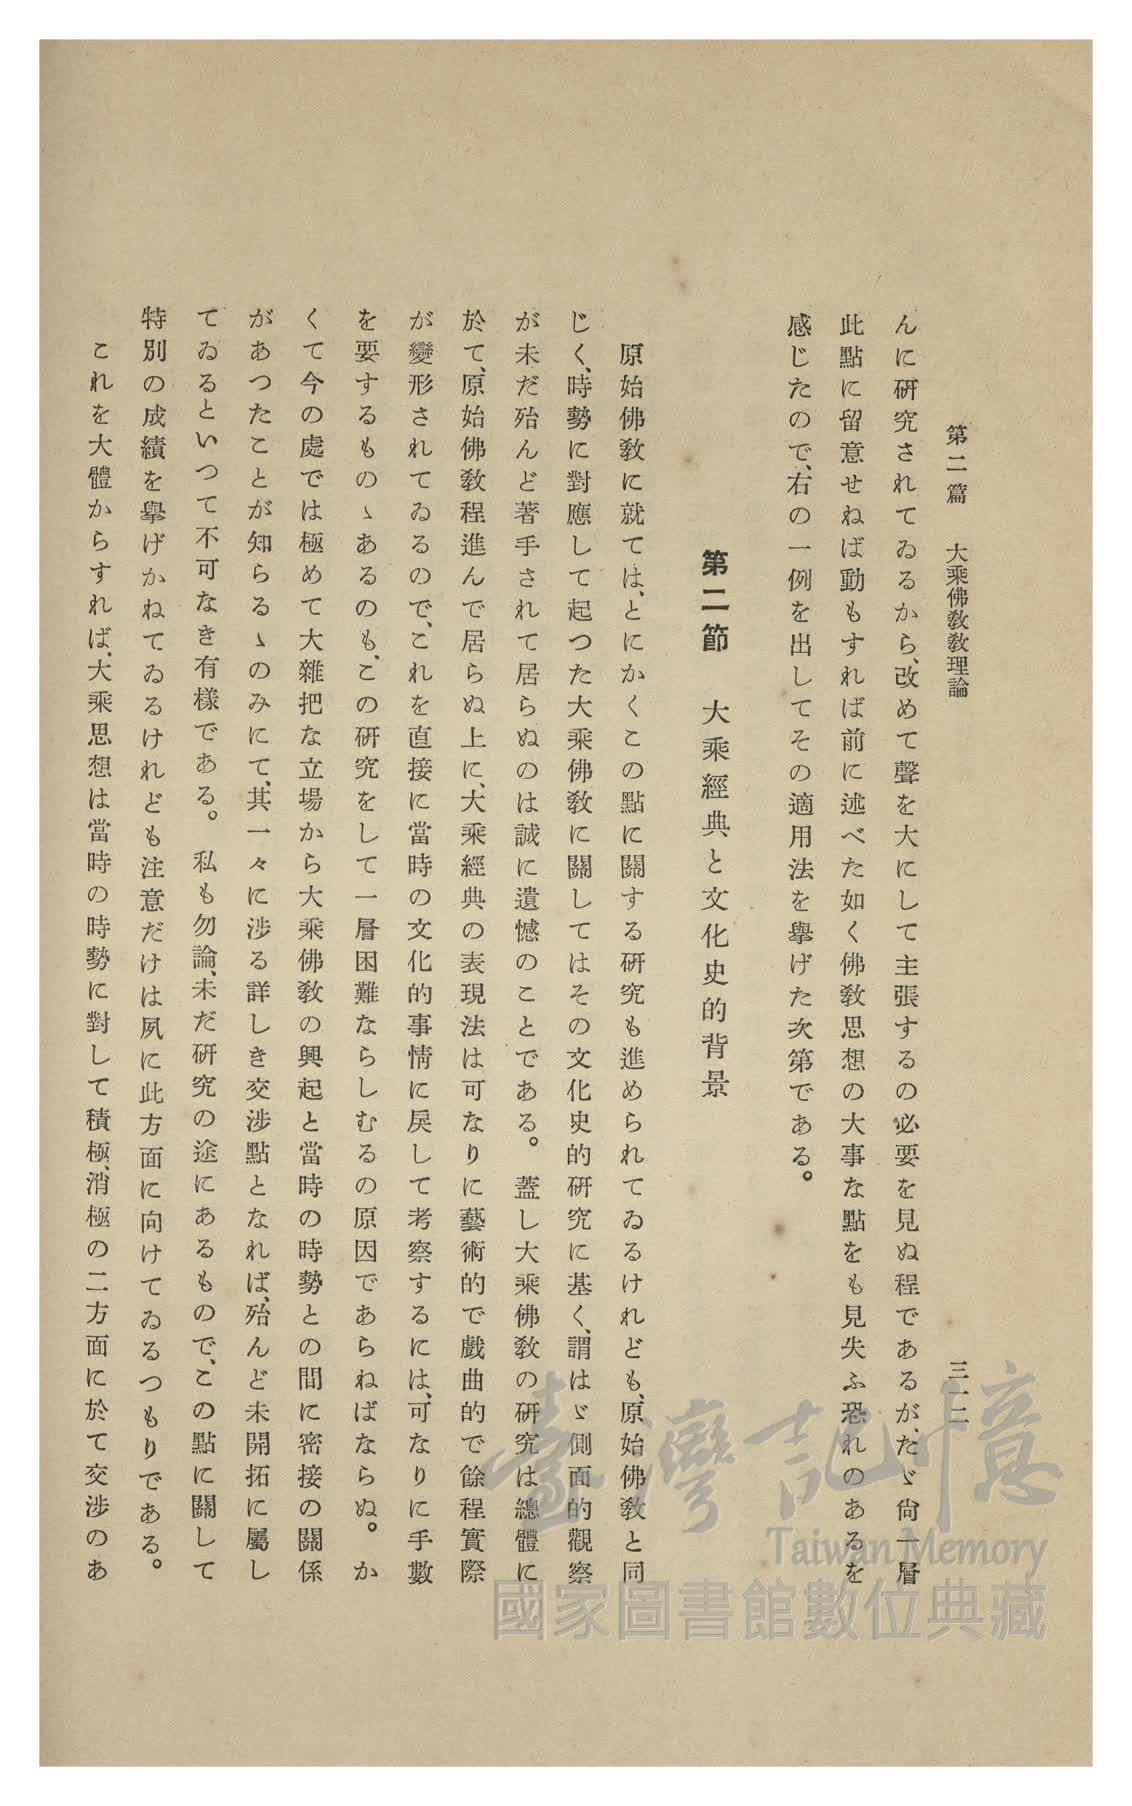 第二篇　大乘佛敎敎理論　三一二
んに硏究されてゐるから、改めて聲を大にして主張するの必要を見ぬ程であるが、たゞ尙一層
此點に留意せねば動もすれば前に述べた如く佛敎思想の大事な點をも見失ふ恐れのあるを
感じたので、右の一例を出してその適用法を擧げた次第である。
第二節　大乘經典と文化史的背景
原始佛敎に就ては、とにかくこの點に關する硏究も進められてゐるけれども、原始佛敎と同
じく、時勢に對應して起つた大乘佛敎に關してはその文化史的硏究に基く、謂はゞ側面的觀察
が未だ殆んど著手されて居らぬのは誠に遺憾のことである。蓋し大乘佛敎の硏究は總體に
於て、原始佛敎程進んで居らぬ上に、大乘經典の表現法は可なりに藝術的で戲曲的で餘程實際
が變形されてゐるので、これを直接に當時の文化的事情に戾して考察するには、可なりに手數
を要するものゝあるのも、この硏究をして一層困難ならしむるの原因であらねばならぬ。か
くて今の處では極めて大雜把な立場から大乘佛敎の興起と當時の時勢との間に密接の關係
があつたことが知らるゝのみにて、其一々に涉る詳しき交涉點となれば、殆んど未開拓に屬し
てゐるといつて不可なき有樣である。私も勿論、未だ硏究の途にあるもので、この點に關して
特別の成績を擧げかねてゐるけれども注意だけは夙に此方面に向けてゐるつもりである。
これを大體からすれば、大乘思想は當時の時勢に對して積極、消極の二方面に於て交涉のあ
臺灣記憶
Taiwan Memory
國家圖書館數位典藏